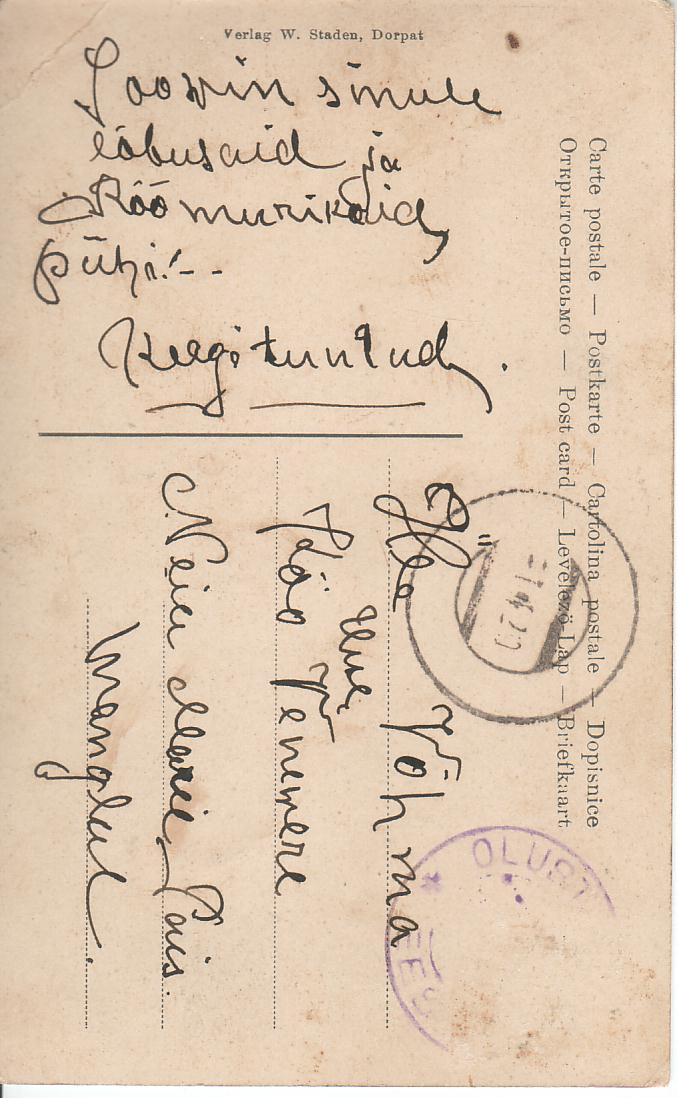 Verlag W. Staden, Dorpat
Soowin sinule
lõbusaid ja
Rõõmurikaid
pühi!--
Keegi tuntud.
Carte postale — Postkarte — Cartolina postale — Dopisnice
Открытое-письмо — Post card — Levelező-Lap — Briefkaart
Üle Võhma
Uue
Kõo
Neiu Marie
OLUST
EES